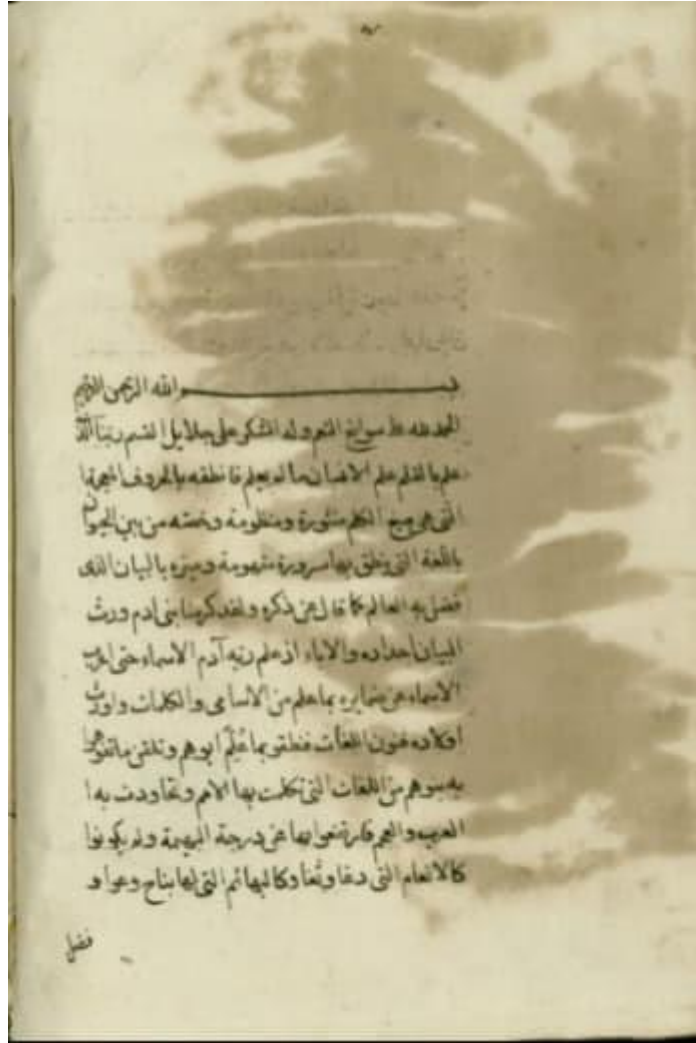 بسم الله الرحمن الرحيم
الحمد لله على سوابغ النعم وله الشكر على جلايل القسم ربنا الذى
علم بالقلم علم الانسان ما لم يعلم فانطقه بالحروف المعجمة
التى هى صيغ الكلم منثورة ومنظومة وخصه من بين الحيوان
باللغة التى ينطق بها سرورة مفهومة وميزه بالبيان الذى
فضل به العالم كما قال عن ذكره ولقد كرمنا بنى ادم ورث
البيان اجداده والاباء اذ علم ربه آدم الاسماء حتى اعرب
الاسماء عن ضمايره بما علم من الاسامى والكلمات واورث
اولاده فنون اللغات فنطقو بما عُلِّم ابوهم وتلقن ما تفوه
به بنوهم من اللغات التى تكلمت بها الامم وتعاودت بها
العرب والعجم فارتفعوا بها عن درجة البهيمة ولم يكونوا
كالانعام التى دغا وثغا وكالبهائم التى لها نباح وعوا و
فضل